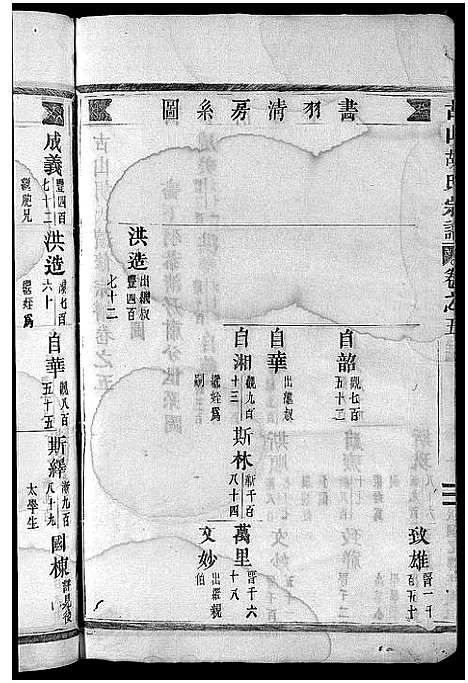 古山胡氏宗譜卷之五
書羽清房系圖
致雄 晉一千百五十
自韶 觀七百五十二
自華 出繼叔
自湘 觀九百十三
斯林 漸千百八十四
萬里 晉千六十八
文妙 出繼親伯
洪造 出繼叔豐四百七十二
成義 豐四百七十二
洪造 七百六十
自華 觀八百五十五
斯繹 漸九百八十九
太學生
國棟 詳見後